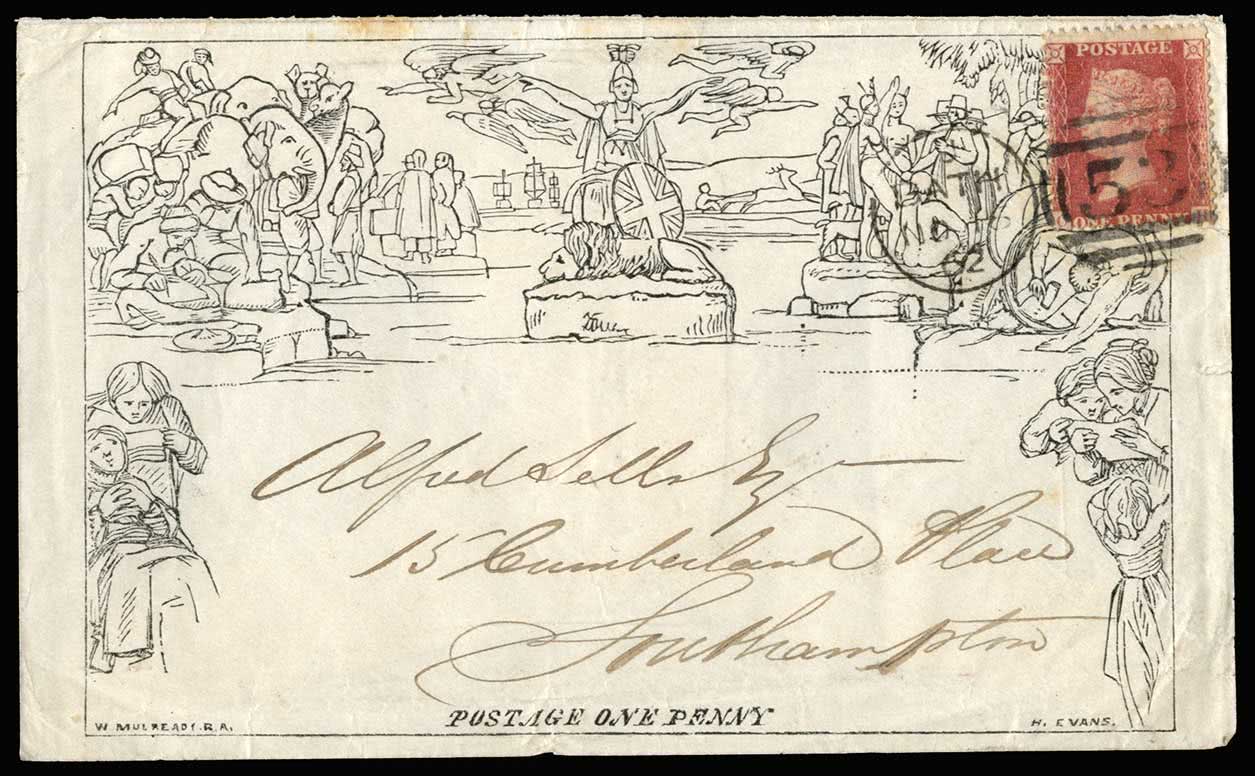 POSTAGE
53
ONE PENNY
BATH
62
Alfred Sells Esq
15 Cumberland Place
Southampton
POSTAGE ONE PENNY
W MULREADY. R.A.
H. EVANS.